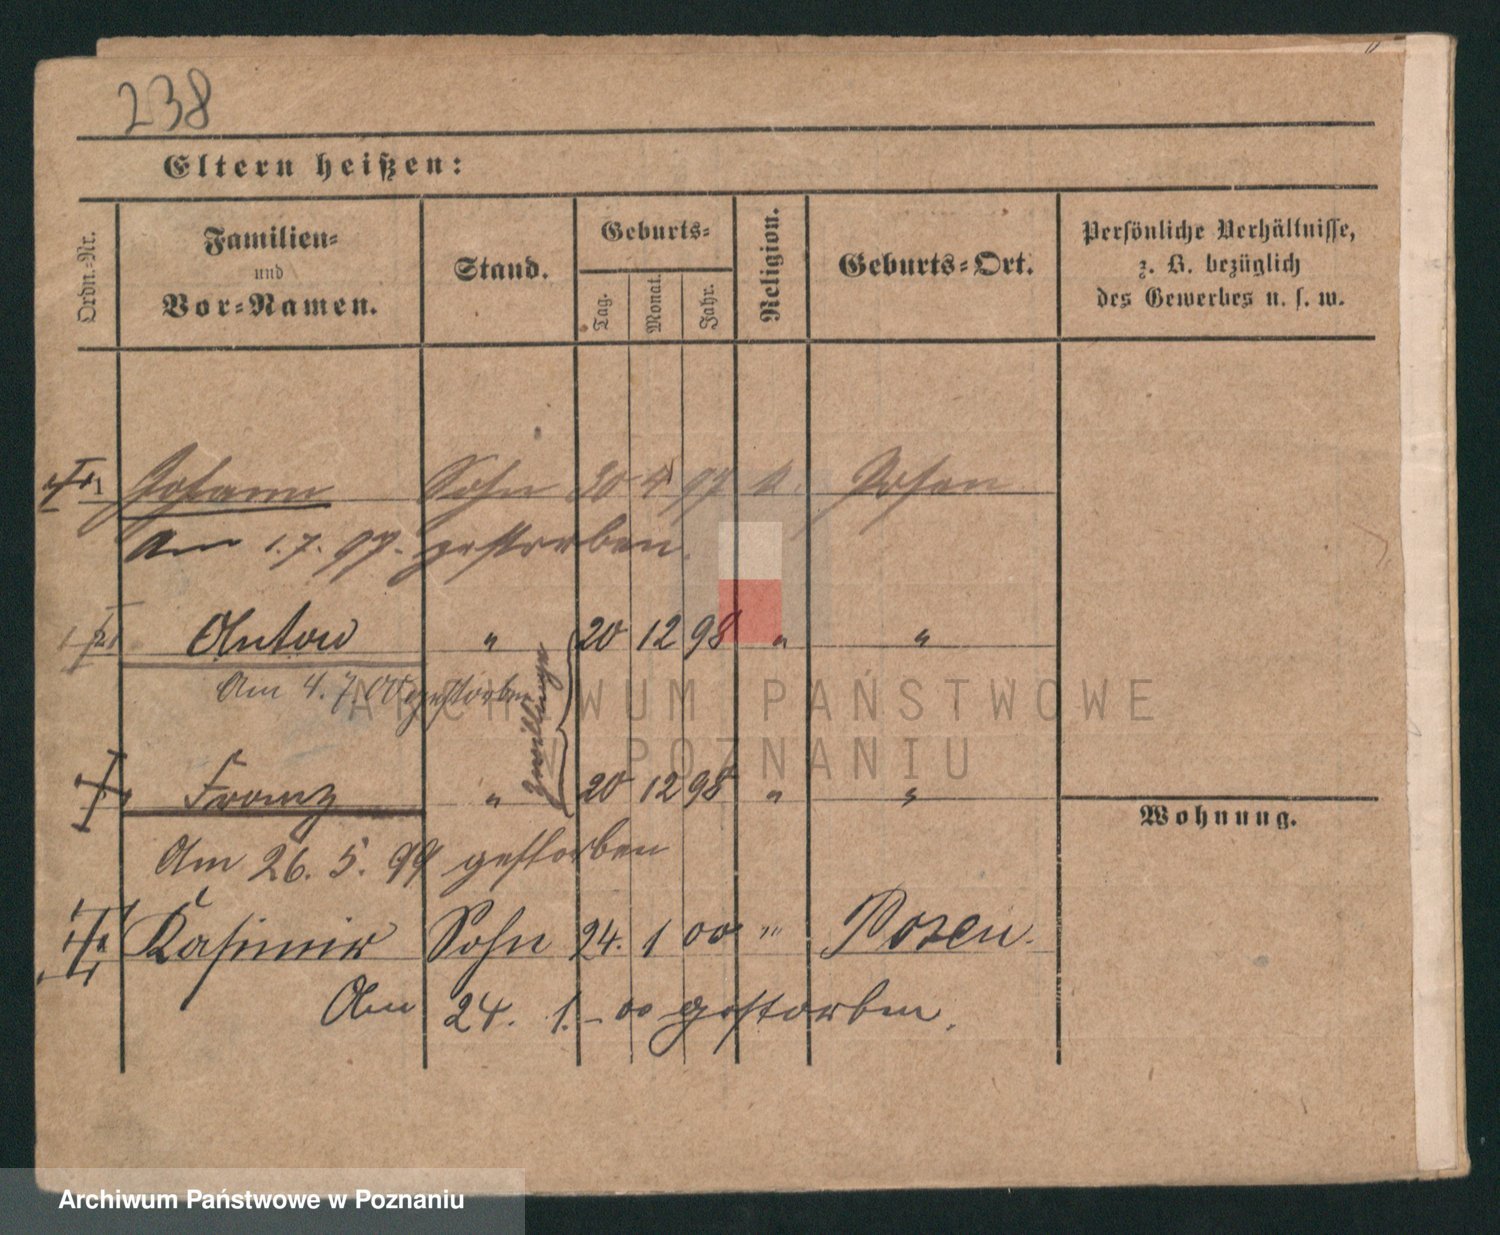 238
Eltern heißen:
Ordn.-Nr.
Familien-
und
Vor-Namen.
Stand.
Geburts-
Tag.
Monat.
Jahr.
Religion.
Geburts-Ort.
Persönliche Verhältnisse,
z. B. bezüglich
des Gewerbes u. s. w.
Johann Sohn 20 4 97 k. Posen
Am 1.7.97. gestorben.
Anton " 20 12 98 " "
Am 4.7.00 gestorben
Zwillinge
Franz " 20 12 98 " "
Wohnung.
Am 26. 5. 99 gestorben
Kasimir Sohn 24. 1 00 " Posen.
Am 24. 1. - 00 gestorben.
ARCHIWUM PAŃSTWOWE
W POZNANIU
Archiwum Państwowe w Poznaniu